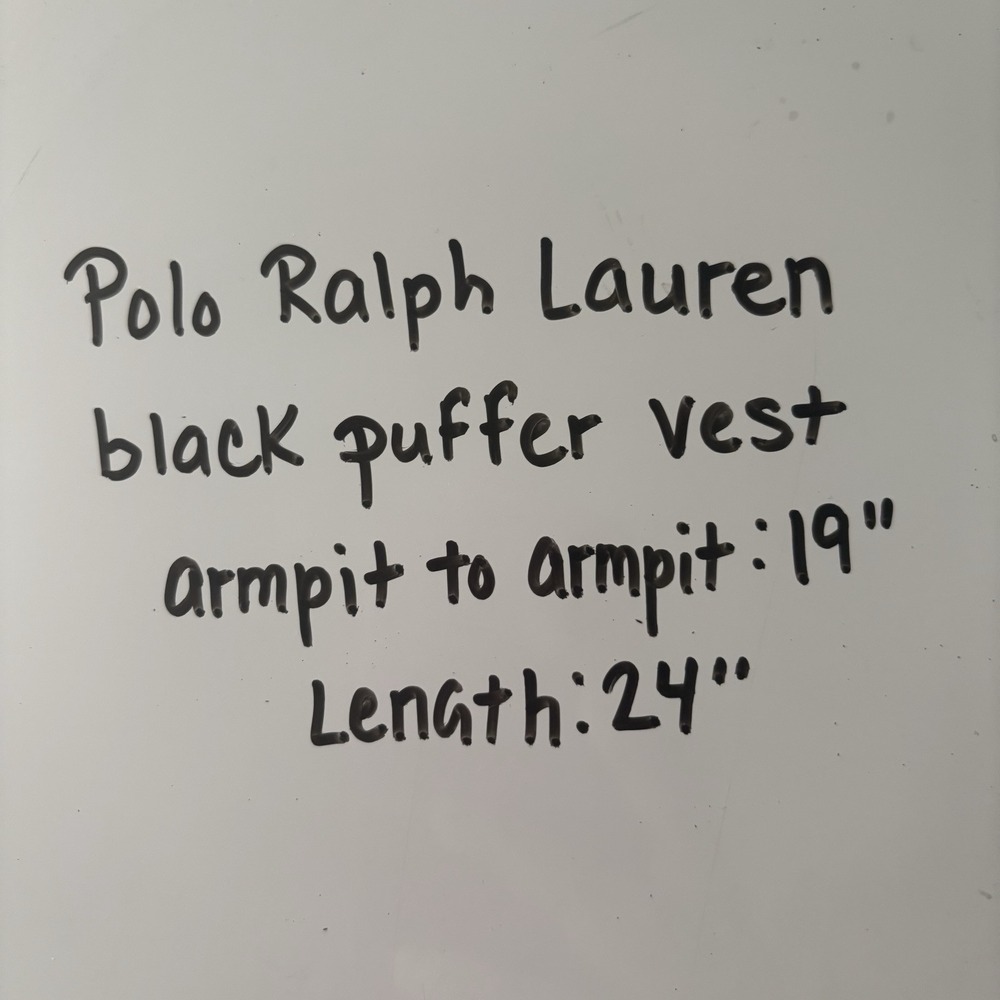 Polo Ralph Lauren
black puffer vest
armpit to armpit: 19"
Length: 24"